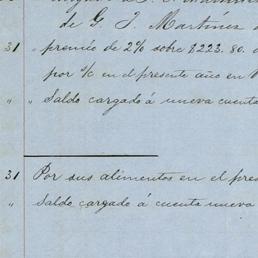 de G. J. Martinez
31 " premio de 2% sobre 8223.80.
por %c en el presente año en
" " Saldo cargado á nueva cuenta
31 Por sus alimentos en el pres
" Saldo cargado á cuenta nueva